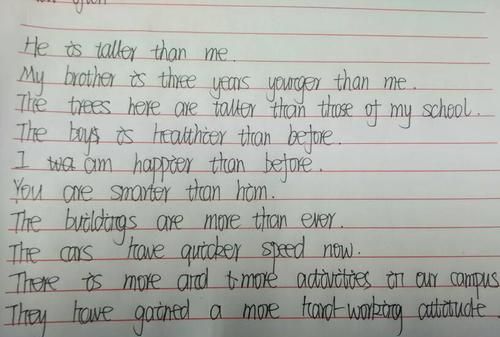 He is taller than me.
My brother is three years younger than me.
The trees here are taller than those of my school.
The boys is healthier than before.
I am happier than before.
You are smarter than him.
The buildings are more than ever.
The cars have quicker speed now.
There is more and more activities in our campus
They have gained a more hard-working attitude.